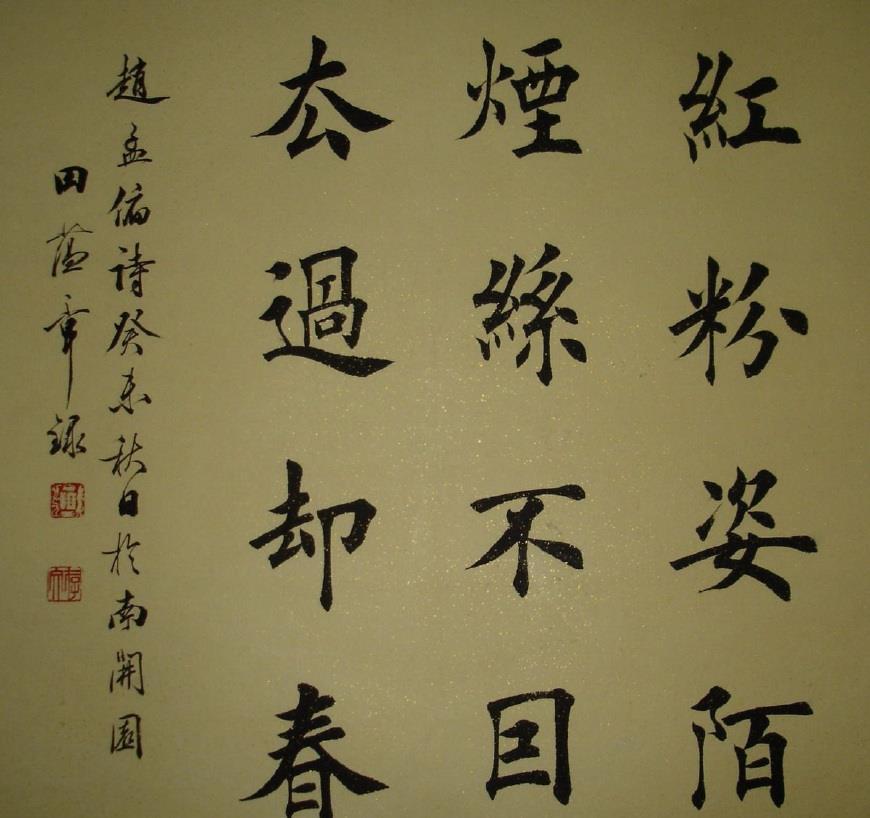 紅粉姿陌
煙絲不回
去過却春
趙孟俯詩癸未秋日於南開園
田蘊章錄